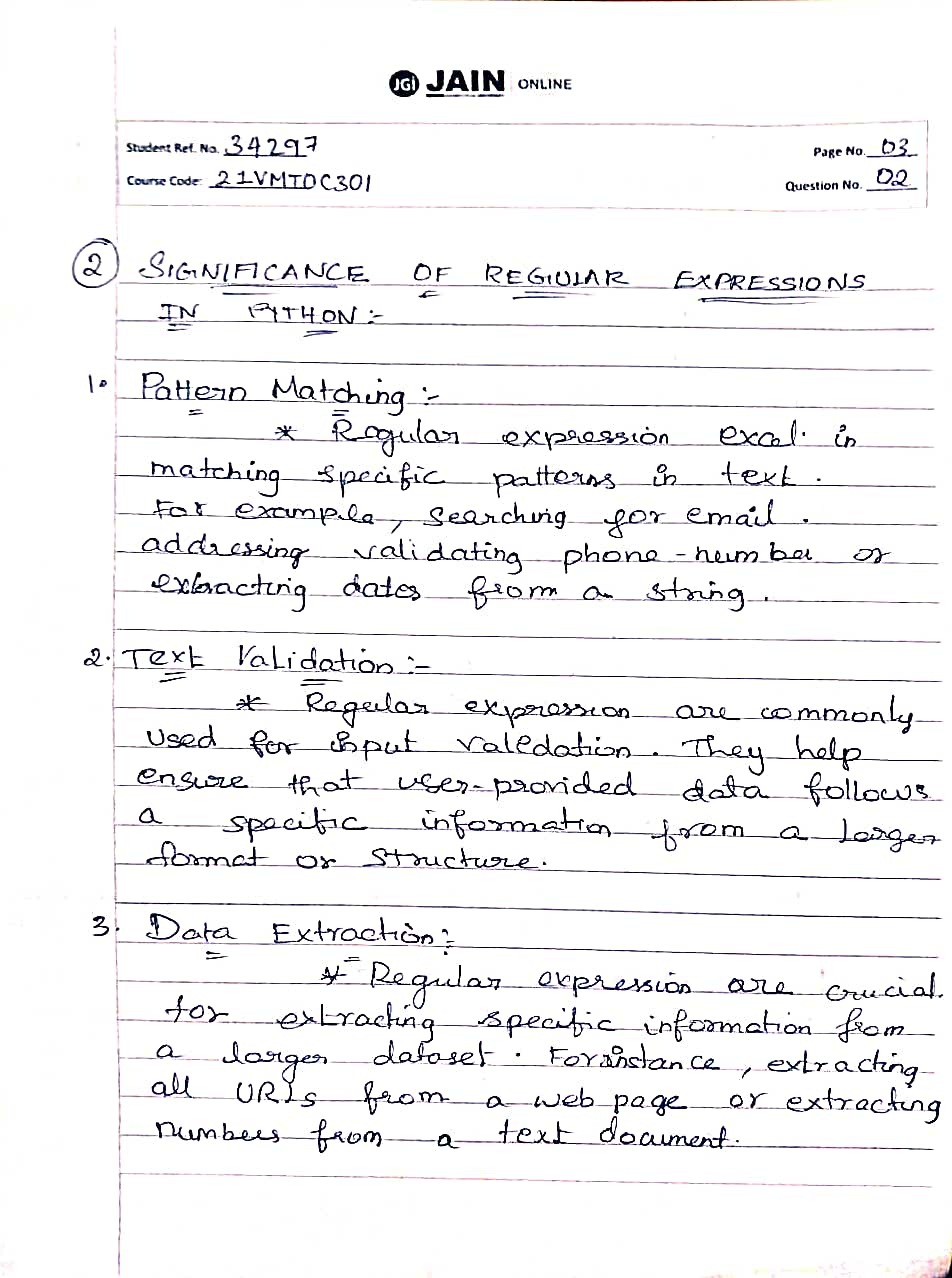 JGi JAIN ONLINE
Student Ref. No. 34297
Page No. 03
Course Code: 21VMTOC301
Question No. 02
② SIGNIFICANCE OF REGIULAR EXPRESSIONS
IN PYTHON :-
1. Pattern Matching :-
* Regular expression excel. in
matching specific patterns in text.
For exampila, searching for email.
addressing validating phone-number or
extracting dates from a string.
2. Text Validation :-
* Regular expression are commonly
used for input valedation. They help
ensure that user-provided data follows
a specific information from a larger
format or structure.
3. Data Extraction :-
* Regular expression are crucial.
for extracting specific information from
a larger dataset. For instance, extracting
all URLs from a web page or extracting
numbers from a text document.